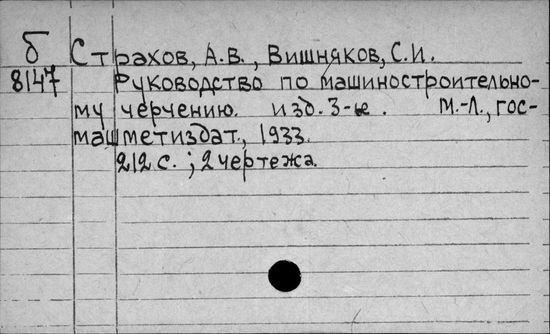 б Страхов, А.В., Вишняков, С.И.
8147 Руководство по машиностроительно-
му черчению. изд. 3-ье. М.-Л., гос-
машметиздат., 1933.
212 с.; 2 чертежа.